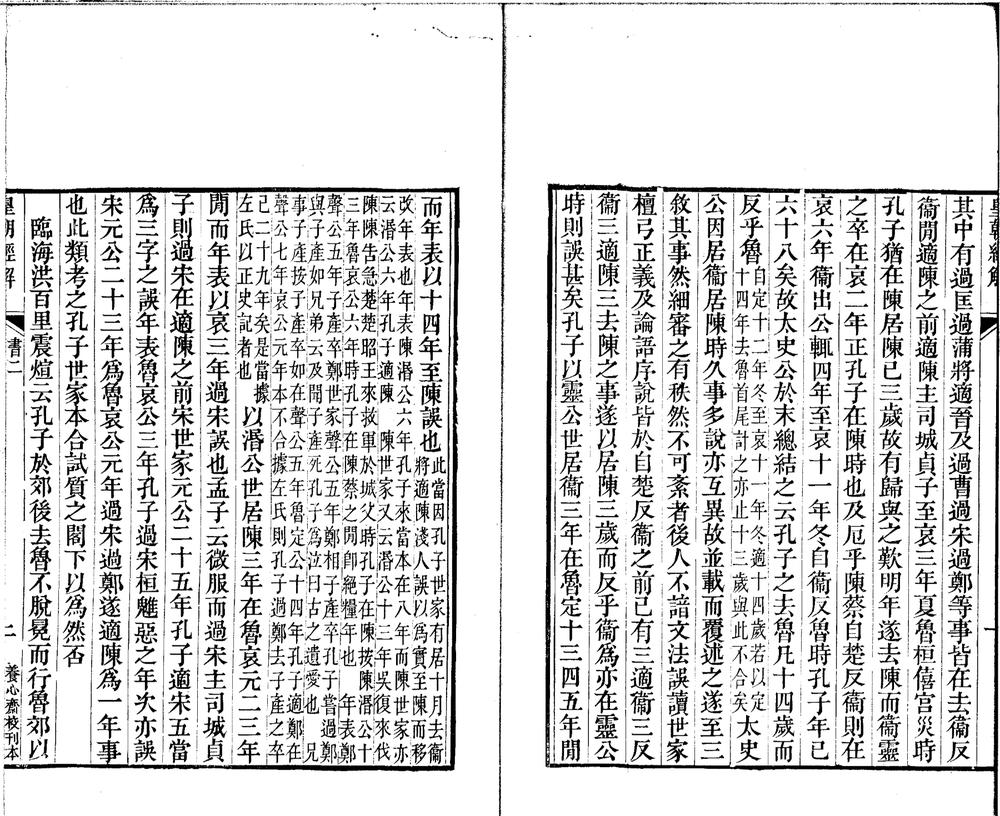 皇朝經解
其中有過匡過蒲將適晉及過曹過宋過鄭等事皆在去衞反
衞閒適陳之前適陳主司城貞子至哀三年夏魯桓僖宮災時
孔子猶在陳居陳已三歲故有歸與之歎明年遂去陳而衞靈
之卒在哀二年正孔子在陳時也及厄乎陳蔡自楚反衞則在
哀六年衞出公輒四年至哀十一年冬自衞反魯時孔子年已
六十八矣故太史公於末總結之云孔子之去魯凡十四歲而
反乎魯自定十二年冬至哀十一年冬適十四歲若以定
十四年去魯首尾計之亦止十三歲與此不合矣太史
公因居衞居陳時久事多說亦互異故並載而覆述之遂至三
敘其事然細審之有秩然不可紊者後人不諳文法誤讀世家
檀弓正義及論語序說皆於自楚反衞之前已有三適衞三反
衞三適陳三去陳之事遂以居陳三歲而反乎衞爲亦在靈公
時則誤甚矣孔子以靈公世居衞三年在魯定十三四五年閒
而年表以十四年至陳誤也此當因孔子世家有居十月去衞
將適陳淺人誤以爲實至陳而移
改年表也年表陳湣公六年孔子來當本在八年而陳世家亦
云湣公六年孔子適陳　陳世家又云湣公十三年吳復來伐
陳陳告急楚楚昭王來救軍於城父時孔子在陳按陳湣公十
三年魯哀公六年時孔子在陳蔡之閒卽絕糧年也　年表鄭
聲公五年子產卒鄭世家聲公五年鄭相子產卒孔子嘗過鄭
與子產如兄弟云及聞子產死孔子爲泣曰古之遺愛也　兄
事子產按子產卒如在聲公五年魯定公十四年孔子適鄭在
聲公七年哀公元年本不合據左氏則孔子過鄭去子產之卒
已二十九年矣是當據
左氏以正史記者也　以湣公世居陳三年在魯哀元二三年
閒而年表以哀三年過宋誤也孟子云微服而過宋主司城貞
子則過宋在適陳之前宋世家元公二十五年孔子適宋五當
爲三字之誤年表魯哀公三年孔子過宋桓魋惡之年次亦誤
宋元公二十三年爲魯哀公元年過宋過鄭遂適陳爲一年事
也此類考之孔子世家本合試質之閣下以爲然否
臨海洪百里震煊云孔子於郊後去魯不脫冕而行魯郊以
皇朝經解
書二
二
養心齋校刊本